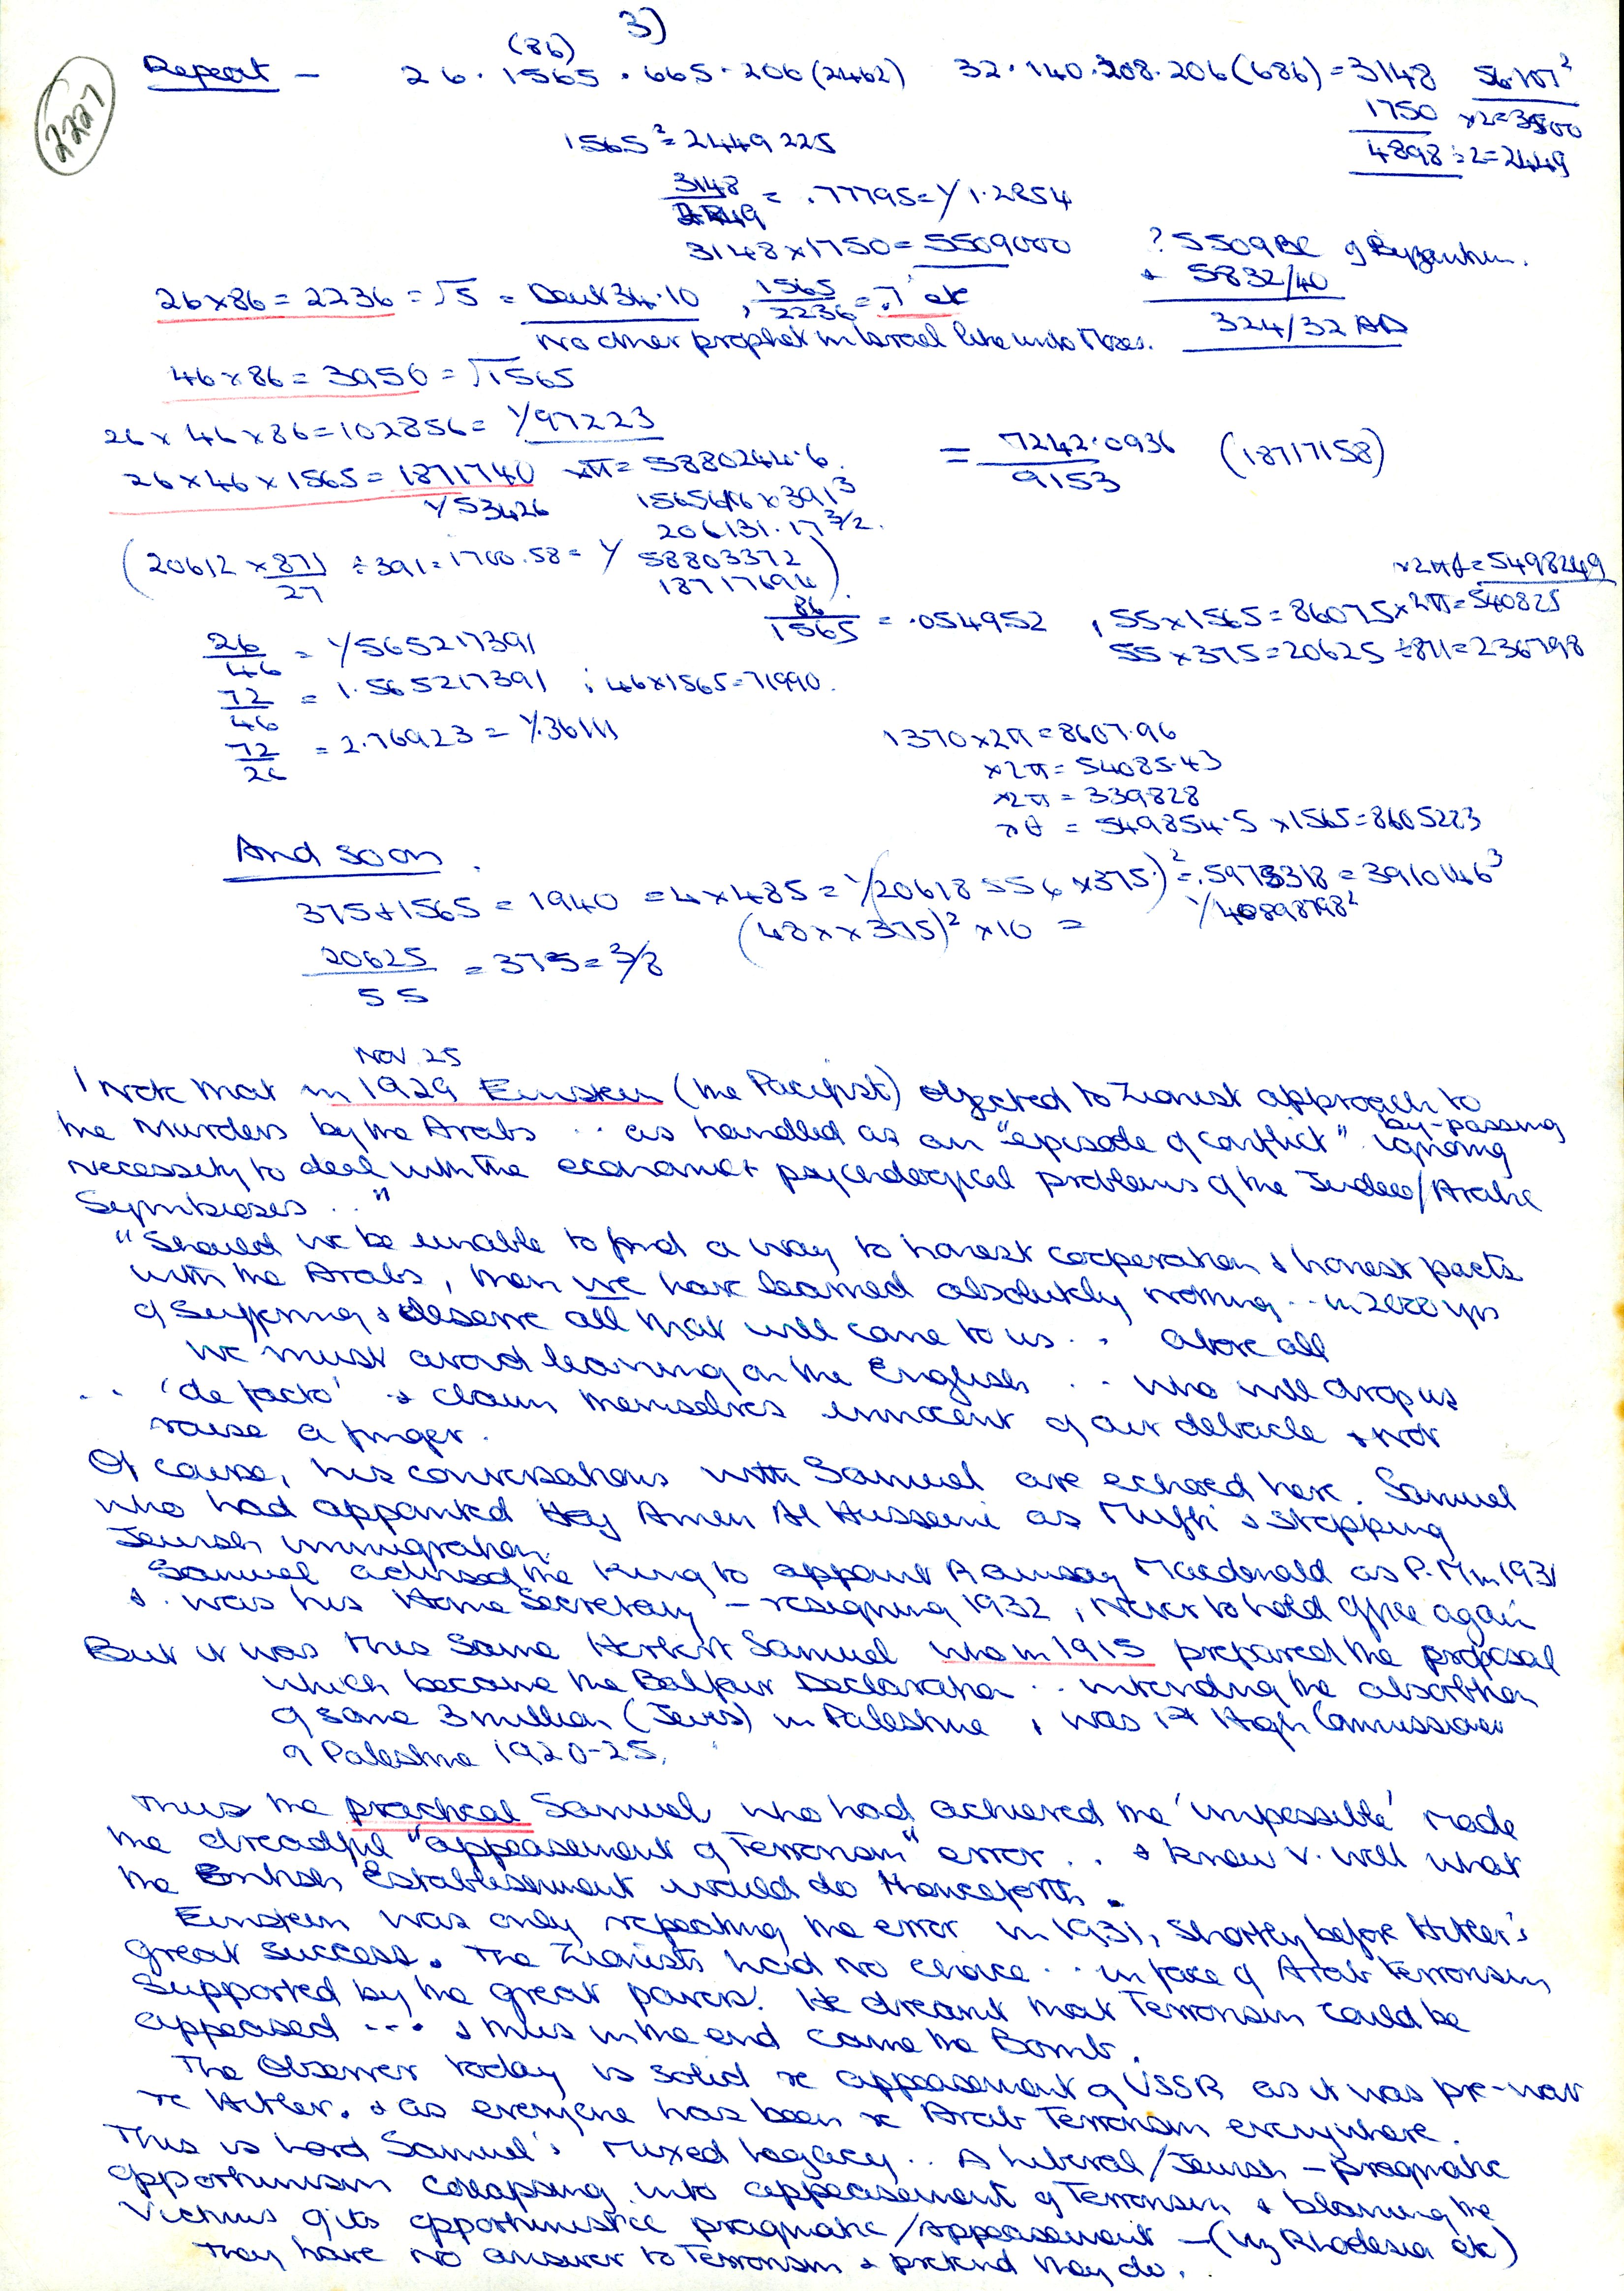 3)
2227
(86)
Repeat – 26 . 1565 . 665 . 206 (2462) 32 . 140 . 308 . 206 (686) = 3148 56.107²
1750 x2=3500
4898 ÷2=2449
1565² = 2449225
3148
2449 = .77795 = 1/1.2854
3148 x 1750 = 5509000
? 5509 BC of Byzantium.
+ 5832/40
324/32 AD
26 x 86 = 2236 = √5 = Deut 34.10 , 1565/2236 = .7 etc
No other prophet in Israel like unto Moses.
46 x 86 = 3956 = √1565
26 x 46 x 86 = 102856 = 1/97223
26 x 46 x 1565 = 1871740 xπ = 5880244.6
1/53426
= 7242.0936/9153 (18717158)
206131.17 3/2.
(20612 x 871/27 ÷ 391 = 1700.58 = 1/ 58803372
18717694)
86/1565 = .054952 , 55 x 1565 = 86075 x 2π = 540825
x2π = 5498249
55 x 375 = 20625 ÷ 871 = 236798
26/46 = 1/565217391
72/46 = 1.565217391 ; 46 x 1565 = 71990.
72/26 = 2.76923 = 1/.36111
1370 x 2π = 8607.96
x2π = 54085.43
x2π = 339828
= 549854.5 x 1565 = 8605223
And so on.
375 + 1565 = 1940 = 4 x 485 = 1/(20618 556 x 375)² = .5973318 = 3910146³
1/40898798²
(48 x x 375)² x 10 =
20625/55 = 375 = 3/8
Nov. 25
I note that in 1929 Einstein (the Pacifist) objected to Zionist approach to
the Murders by the Arabs .. as handled as an "episode of conflict" ignoring
by-passing
necessity to deal with the economic + psychological problems of the Judeo/Arabic
Symbioses .."
"Should we be unable to find a way to honest cooperation & honest pacts
with the Arabs, then we have learned absolutely nothing .. in 2000 yrs
of Suffering & deserve all that will come to us .. above all
we must avoid leaning on the English .. who will drop us
.. 'de facto' & claim themselves innocent of our debacle & not
raise a finger.
Of course, his conversations with Samuel are echoed here. Samuel
who had appointed Haj Amen Al Husseini as Mufti & stopping
Jewish immigration.
Samuel advised the King to appoint Ramsay Macdonald as P.M in 1931
& was his Home Secretary – resigning 1932, never to hold office again
But it was this same Herbert Samuel who in 1915 prepared the proposal
which became the Balfour Declaration .. intending the absorbtion
of some 3 million (Jews) in Palestine , was 1st High Commissioner
of Palestine 1920-25.
Thus the practical Samuel, who had achieved the 'impossible' made
the dreadful "appeasement of Terrorism" error .. & knew v. well what
the British Establishment would do thenceforth.
Einstein was only repeating the error in 1931, shortly before Hitler's
great success. The Zionists had no choice .. in face of Arab terrorism
supported by the great powers. He dreamt that Terrorism could be
appeased ... & thus in the end came the Bomb.
The Observer today is solid re appeasement of USSR as it was pre-war
re Hitler. & as everyone has been re Arab Terrorism everywhere.
This is Lord Samuel's Mixed Legacy .. A Liberal/Jewish – pragmatic
opportunism collapsing into appeasement of Terrorism & blaming the
Victims of its opportunistic pragmatic/Appeasement – (viz Rhodesia etc)
They have no answer to Terrorism & pretend they do.